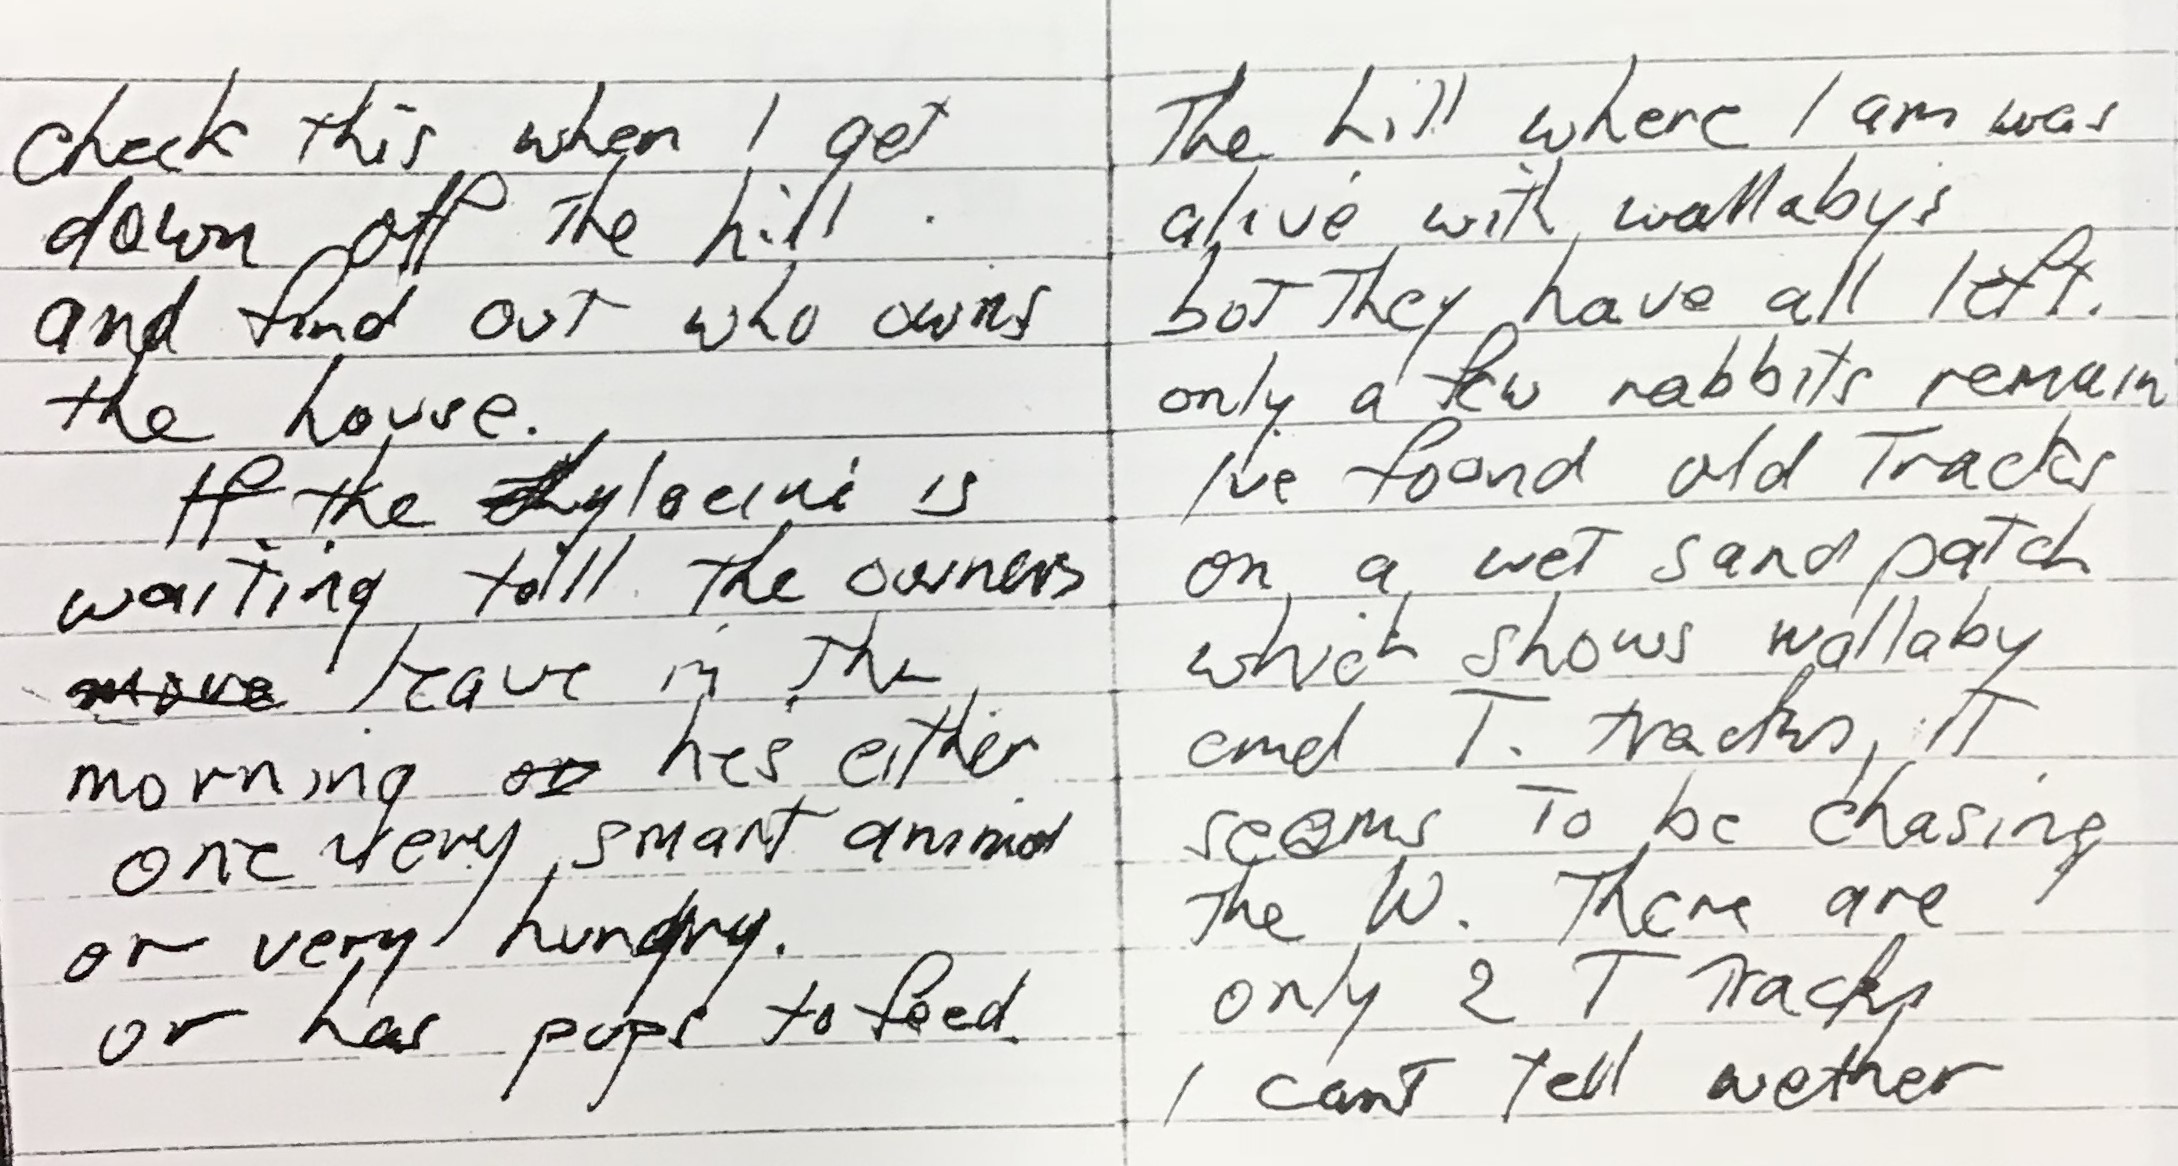 check this when I get
down off the hill.
and find out who owns
the house.
If the thylacine is
waiting till the owners
move leave in the
morning or hes either
one very smart animal
or very hungry.
or has pups to feed.
The hill where I am was
alive with wallaby's
but they have all left.
only a few rabbits remain
I've found old Tracks
on a wet sand patch
which shows wallaby
and T. tracks, iT
seems To be chasing
The W. There are
only 2 T Tracks
I can't Tell wether